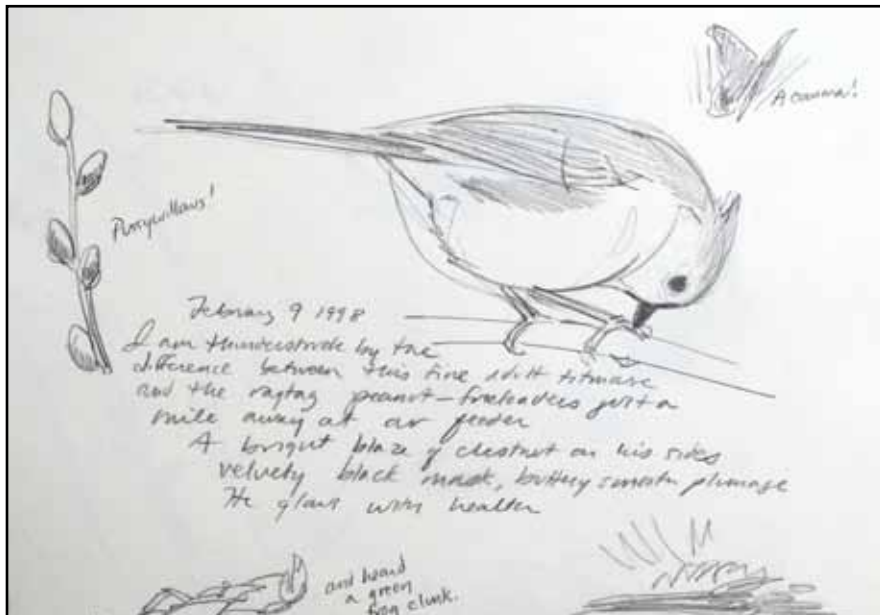 A comma!
Pussywillows!
February 9 1998
I am thunderstruck by the
difference between this fine wild titmouse
and the ragtag peanut-freeloaders just a
mile away at our feeder
A bright blaze of chestnut on his sides
velvety black mask, buttery smooth plumage
He glows with health
and heard
a green
frog clunk.